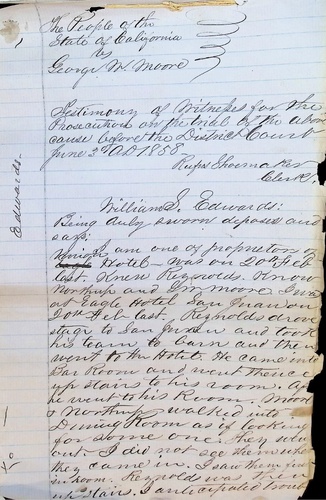 The People of the
State of California
vs
George W. Moore
Testimony of Witnesses for the
Prosecution on the trial of the above
cause before the District Court
June 3d AD 1858
Rufus Shoemaker
Clerk
Edwards
William S. Edwards:
Being duly sworn deposes and
says:
I am one of proprietors of
Hotel - was on 20th Feb
last. Knew Reynolds. Know
Northrup and Moore I was
at Eagle Hotel San Juan on
20th Feb last. Reynolds drove
stage to San Juan and took
his team to barn and then
went to the Hotel. He came into
Bar Room and went thence
up stairs to his room.
he went to his Room. Moore
& Northrup walked into
Dining Room as if looking
for some one. they went
out - I did not see them when
they came in. I saw them first
in room. Reynolds was then
up stairs. I anticipated trouble